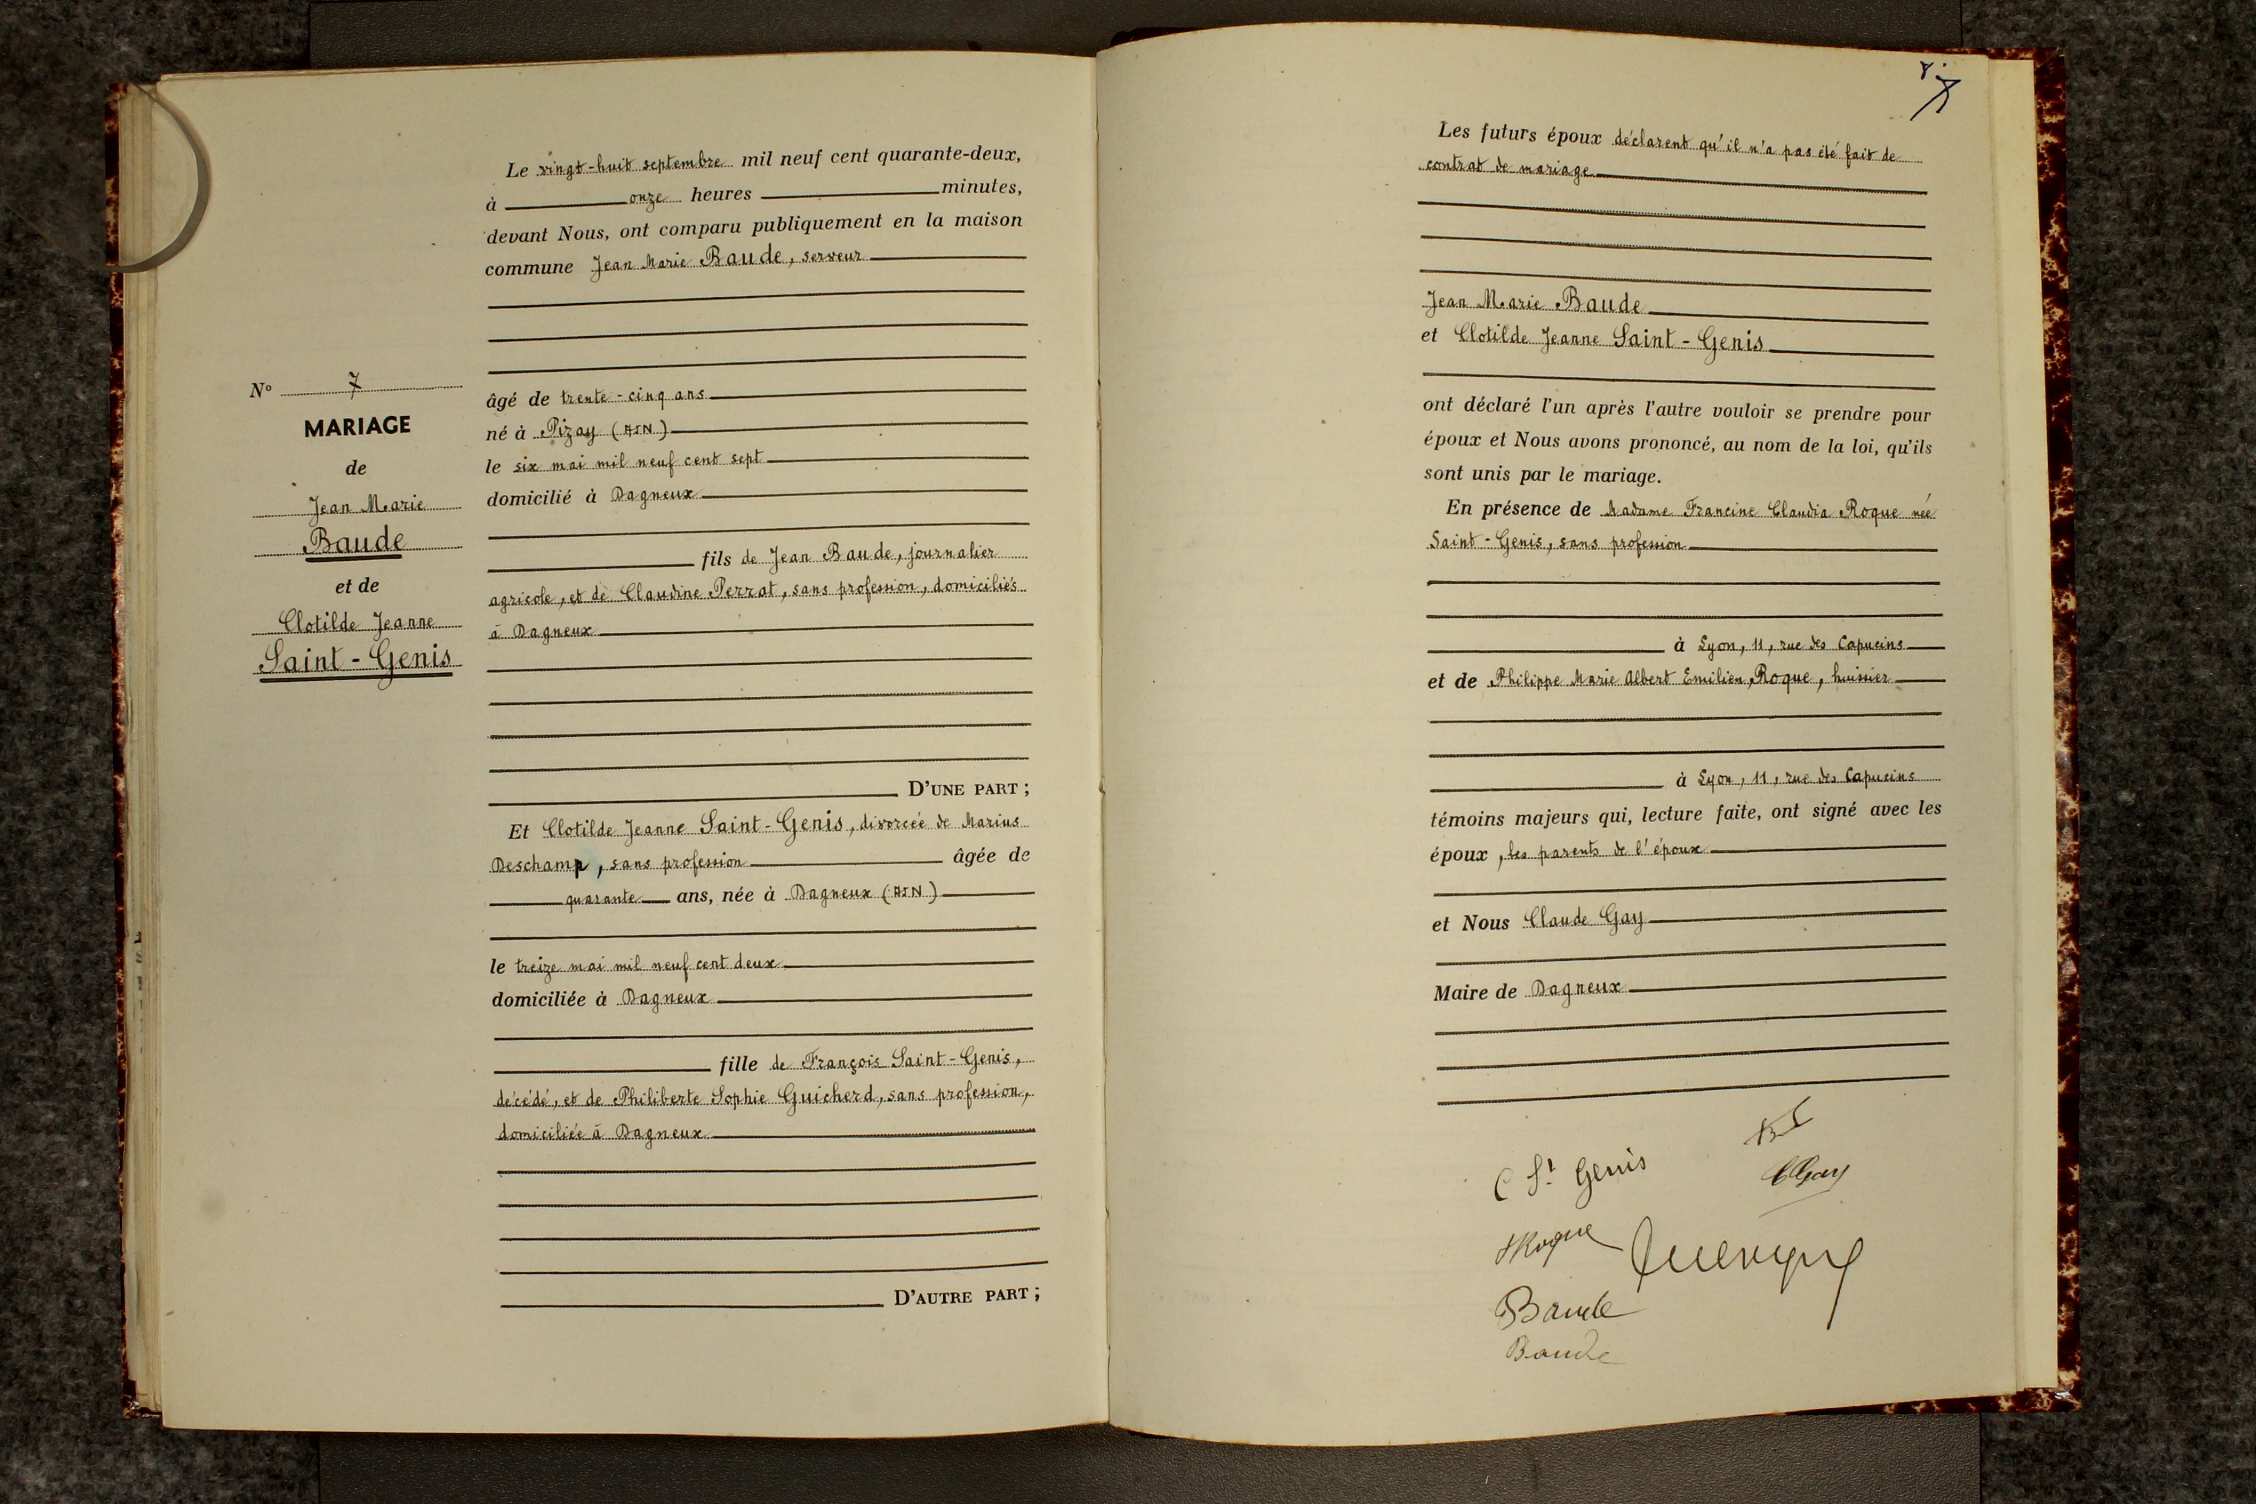 N° 7
MARIAGE
de
Jean Marie
Baude
et de
Clotilde Jeanne
Saint-Genis
Le vingt-huit septembre mil neuf cent quarante-deux,
à onze heures minutes,
devant Nous, ont comparu publiquement en la maison
commune Jean Marie Baude, serveur
âgé de trente-cinq ans
né à Pizay (AIN)
le six mai mil neuf cent sept
domicilié à Dagneux
fils de Jean Baude, journalier
agricole, et de Claudine Perrat, sans profession, domiciliés
à Dagneux
D'UNE PART ;
Et Clotilde Jeanne Saint-Genis, divorcée de Marius
Deschamp, sans profession âgée de
quarante ans, née à Dagneux (AIN)
le treize mai mil neuf cent deux
domiciliée à Dagneux
fille de François Saint-Genis,
décédé, et de Philiberte Sophie Guicherd, sans profession,
domiciliée à Dagneux
D'AUTRE PART ;
7
Les futurs époux déclarent qu'il n'a pas été fait de
contrat de mariage
Jean Marie Baude
et Clotilde Jeanne Saint-Genis
ont déclaré l'un après l'autre vouloir se prendre pour
époux et Nous avons prononcé, au nom de la loi, qu'ils
sont unis par le mariage.
En présence de Madame Francine Claudia Roque née
Saint-Genis, sans profession
à Lyon, 11, rue des Capucins
et de Philippe Marie Albert Emilien Roque, huissier
à Lyon, 11, rue des Capucins
témoins majeurs qui, lecture faite, ont signé avec les
époux, les parents de l'époux
et Nous Claude Gay
Maire de Dagneux
C St Genis
CGay
Roque
Baude
Baude